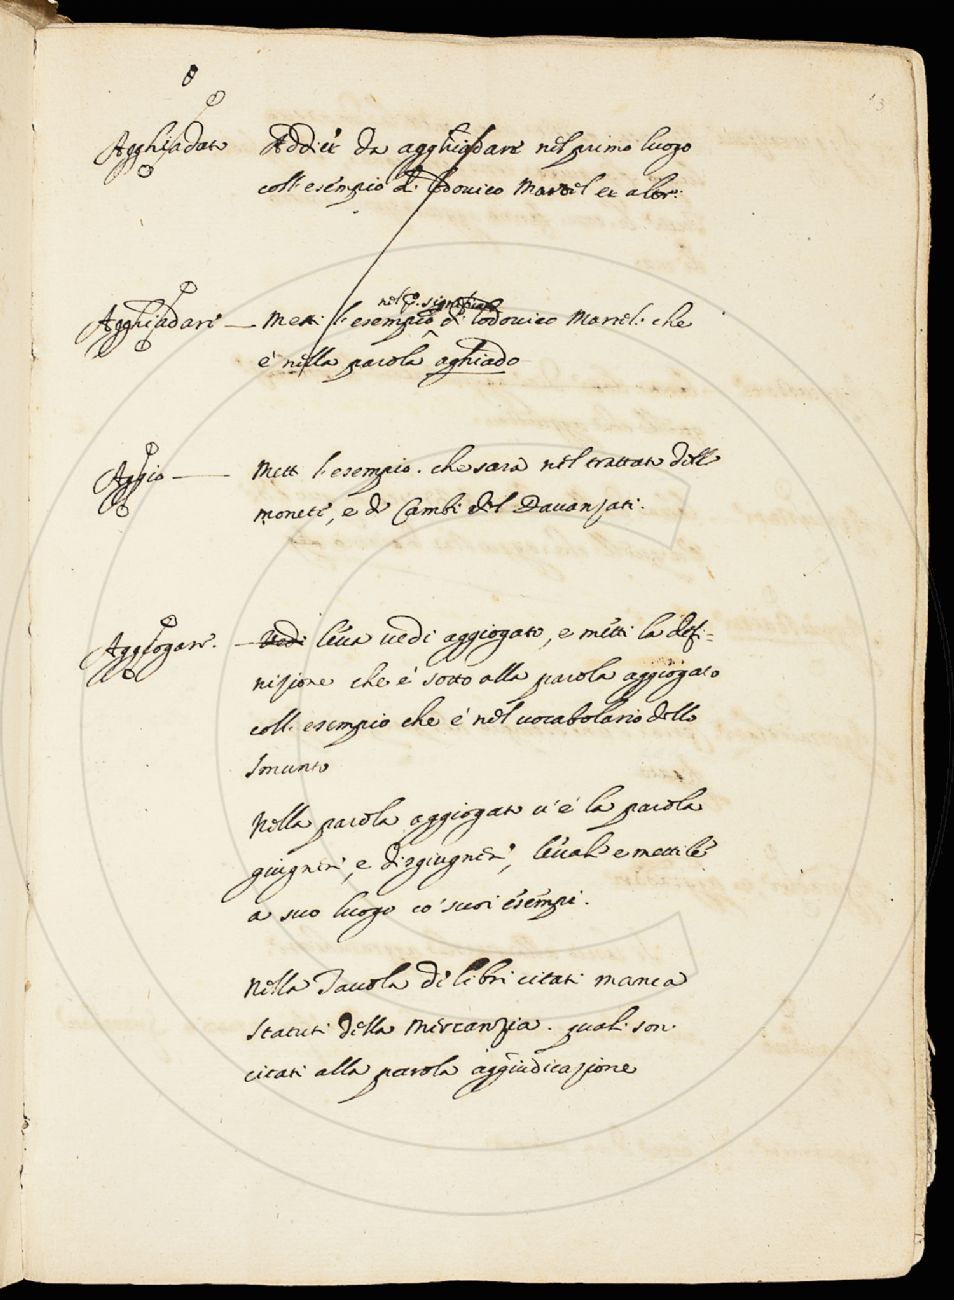 13
Agghiadato Addiet da agghiadare nel primo luogo
coll esempio di lodouico Martel et altr:
nel p.o significato
Agghiadare — Metti l'esempio di lodouico Martel: che
é nella parola aghiado
Aggio — Mett l'esempio. che sara nel trattato dell
monete, e de Cambi del Dauanzati.
Aggiogare. — Vedi leua uedi aggiogato, e metti la defi=
nizione che é sotto alla parola aggiogato
coll. esempio che é nel uocabolario dello
smunto
Nella parola aggiogato u'é la parola
giugnere, e disgiugnere, leuale e mettile
a suo luogo co' suoi esempi.
Nella Tauola de libri citati manca
Statuti della Mercanzia. quali son.
citati alla parola aggiudicazione